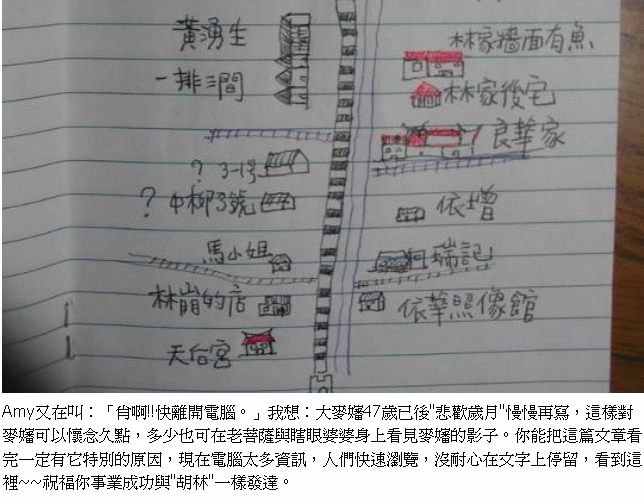 黃湧生
一排三間
? 3-1号
? 中柳3號
馬小姐
林崩的店
天后宮
林家牆面有魚
林家後宅
良華家
依增
何瑞記
依華照像館
Amy又在叫：「肯啊!!快離開電腦。」我想：大麥嬸47歲已後"悲歡歲月"慢慢再寫，這樣對
麥嬸可以懷念久點，多少也可在老菩薩與瞎眼婆婆身上看見麥嬸的影子。你能把這篇文章看
完一定有它特別的原因，現在電腦太多資訊，人們快速瀏覽，沒耐心在文字上停留，看到這
裡~~祝福你事業成功與"胡林"一樣發達。